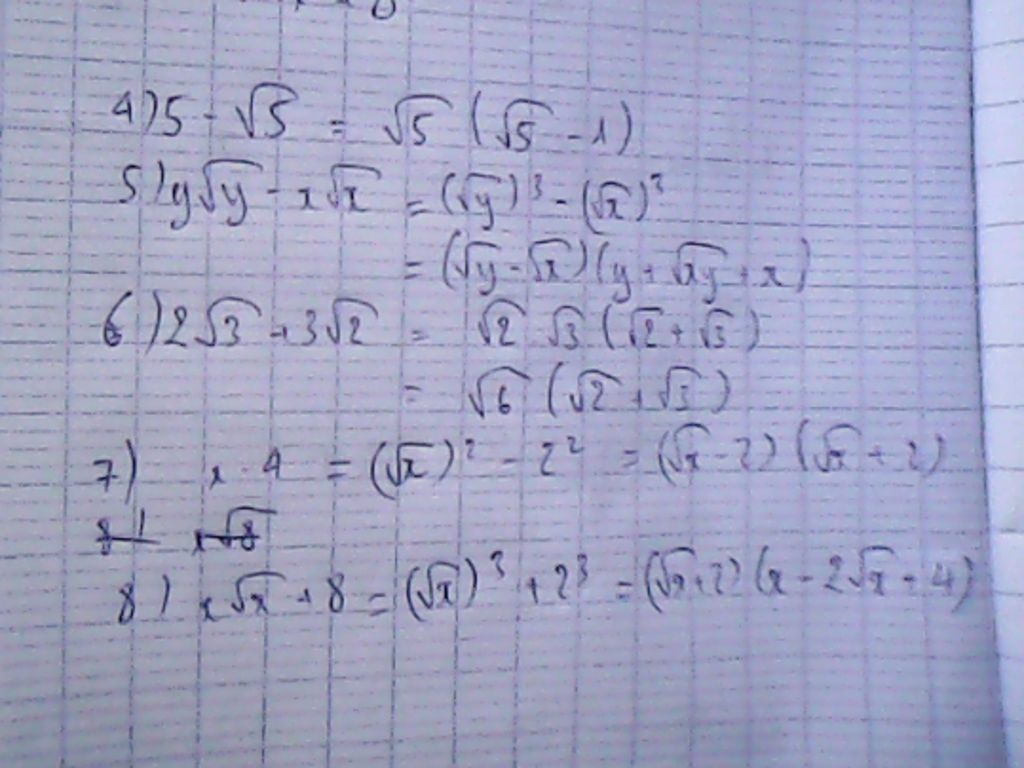 4) 5 - √5 = √5 (√5 - 1)
5) y√y - x√x = (√y)³ - (√x)³
= (√y - √x)(y + √xy + x)
6) 2√3 + 3√2 = √2 √3 (√2 + √3)
= √6 (√2 + √3)
7) x - 4 = (√x)² - 2² = (√x - 2)(√x + 2)
8) x√8
8) x√x + 8 = (√x)³ + 2³ = (√x + 2)(x - 2√x + 4)